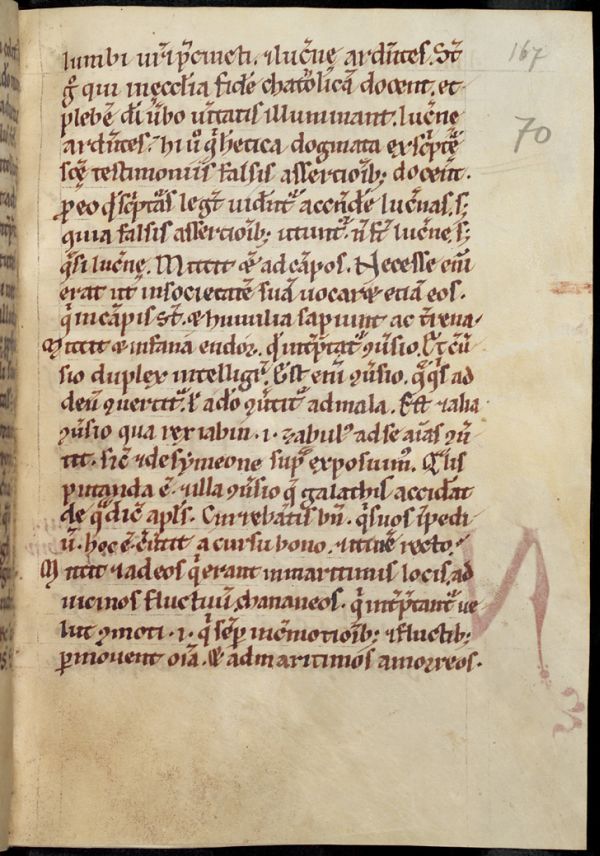 lumbi ur̄i p̄cincti. ⁊ lucn̄e ardn̄tes. St̄
g͛ qui in ęccl̄ia fidē chatolicā docent. et
plebē dī ūbo ūitatis illuminant. lucn̄e
ardn̄tes. hi u͛ q̄ hētica dogmata ex sc̄ptē
scē testimoniis falsis assertioīb; docent.
ꝓ eo qd̄ sc̄pt͛as legt̄ uident͛ accendē lucn̄as, s;
quia falsis assertioīb; n̄ st̄ lucn̄e, s;
q̄si lucn̄e. Mittit ⁊ ad cāpos. Necesse enī
erat ut in societatē suā uocaret etiā eos.
q̄ in cāpis st̄. ⁊ humilia sapiunt ac t̄rena.
Mittit ⁊ in fanan endor. q̄ int̄p̄tat͛ ꝯuersio. Et ꝯū
sio duplex intelligit͛. Est enī ꝯūsio. q̄ q̄s ad
deū ꝯuertit͛. ł a dō ꝯūtit͛ ad mala. Est ⁊ alia
ꝯūsio qua rex iabin .i. zabul͛ ad se aīas ꝯū
tit. sic̄ ⁊ de symeone sup͛ exposuim͛. Q̄lis
putanda ē ⁊ illa ꝯūsio q̄ galathis accidāt
de q͛ dic̄ apl̄s. Currebatis bn̄. q̄s uos īpedi
ū. hęc ē ꝯūtit a cursu bono. ⁊ itinē recto.
Mittit ⁊ ad eos q̄ erant in maritimis locis, ad
uicinos fluctuū, chananeos. q̄ int̄p̄tant͛ ue
lut ꝯmoti .i. q̄ sēp in cōmotioīb; ⁊ fluctib;
ꝑmouent oīa. ⁊ ad maritimos amorreos.
167
70